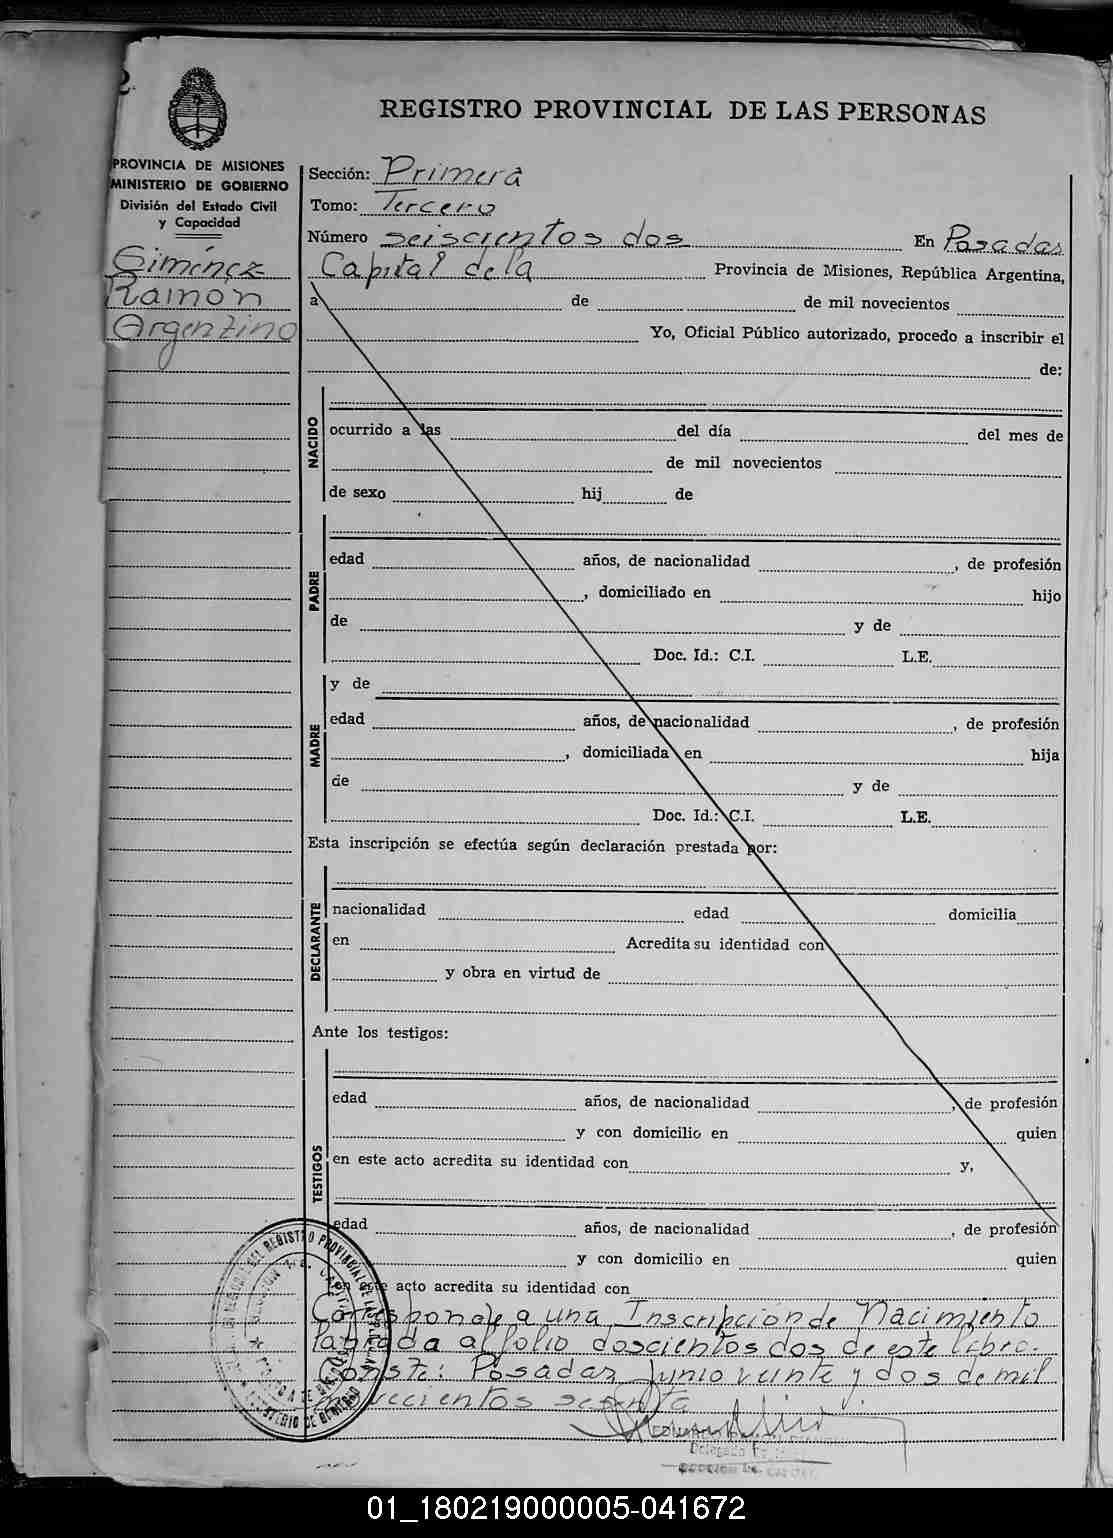 2
REGISTRO PROVINCIAL DE LAS PERSONAS
PROVINCIA DE MISIONES
MINISTERIO DE GOBIERNO
División del Estado Civil
y Capacidad
Giménez
Ramón
Argentino
Sección: Primera
Tomo: Tercero
Número seiscientos dos En Posadas
Capital de la Provincia de Misiones, República Argentina,
a de de mil novecientos
Yo, Oficial Público autorizado, procedo a inscribir el
de:
NACIDO
ocurrido a las del día del mes de
de mil novecientos
de sexo hij de
PADRE
edad años, de nacionalidad , de profesión
, domiciliado en hijo
de y de
Doc. Id.: C.I. L.E.
MADRE
y de
edad años, de nacionalidad , de profesión
, domiciliada en hija
de y de
Doc. Id.: C.I. L.E.
Esta inscripción se efectúa según declaración prestada por:
DECLARANTE
nacionalidad edad domicilia
en Acredita su identidad con
y obra en virtud de
Ante los testigos:
TESTIGOS
edad años, de nacionalidad , de profesión
y con domicilio en quien
en este acto acredita su identidad con y,
edad años, de nacionalidad , de profesión
y con domicilio en quien
acto acredita su identidad con
Corresponde a una Inscripción de Nacimiento
labrada al folio doscientos dos de este libro.
Conste: Posadas Junio veinte y dos de mil
novecientos sesenta
01_180219000005-041672